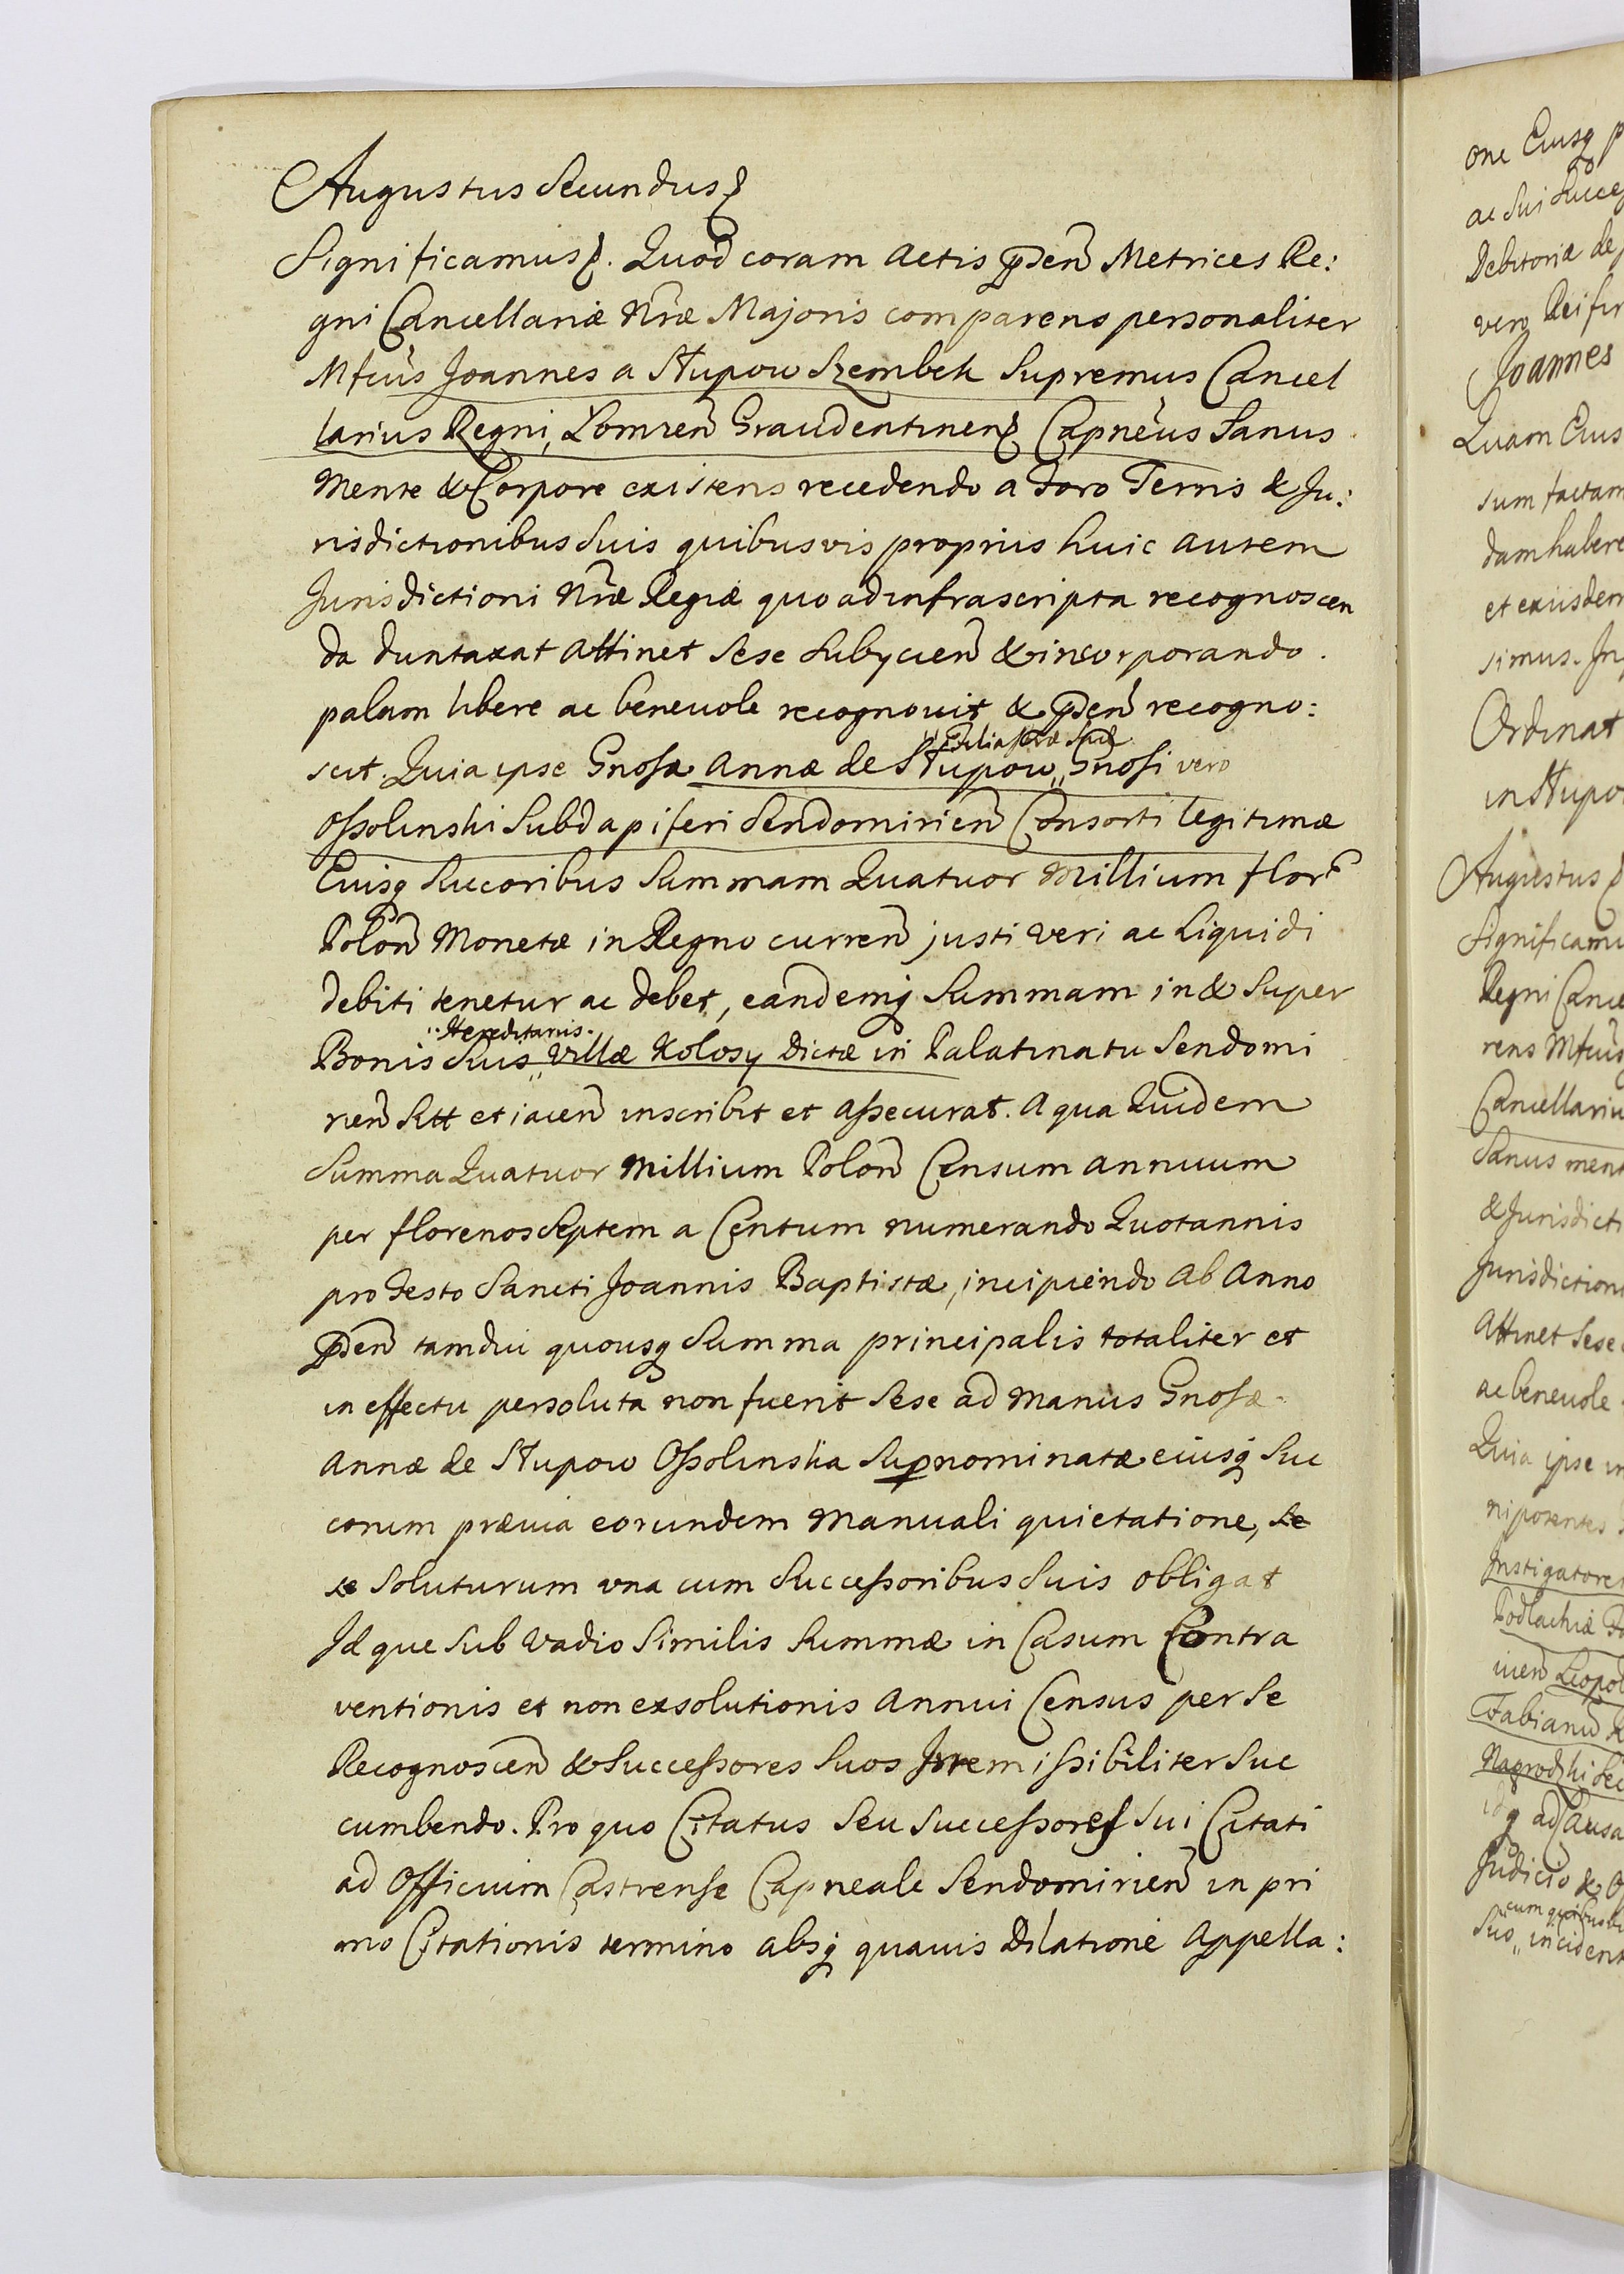 Augustus Secundus
Significamus. Quod coram Actis pnden̄ Metrices Re:
gni Cancellariæ Nrae Majoris comparens personaliter
Mfcus Joannes a Słupow Szembek Supremus Cancel
larius Regni, Łomzen̄ Graudentinen̄ Capneus Sanus
Mente & Corpore existens recedendo a Foro Terris & Ju:
risdictionibus Suis quibusvis proprius huic autem
Jurisdictioni Nræ Regiæ quo ad infrascripta recognoscen
da duntaxat attinet Sese Subycien̄ & incorporando.
palam libere ac beneuole recognouit & pnden̄ recogno:
scit. Quia ipse Gnosæ Annæ de Słupow,, Gnosi vero
Ossolinski Subdapiferi Sendomirien̄ Consorti legitimæ
Eiusq Succoribus Summam Quatuor Millium flor
Polon̄ Monetæ in Regno curren̄ justi veri ac Liquidi
debiti tenetur ac debet, eandemq Summam in & Super
,, Hereditariis.
Bonis Suis,, Villæ Kolosy dictæ in Palatinatu Sendomi
rien̄ Sitt et iacen̄ inscribit et assecurat. A qua Quidem
Summa Quatuor Millium Polon̄ Censum annuum
per florenos Septem a Centum numerando Quotannis
pro Festo Sancti Joannis Baptistæ, incipiendo Ab Anno
pnden̄ tamdiu quousq Summa principalis totaliter et
in effectu persoluta non fuerit Sese ad manus Gnosæ
Annæ de Słupow Ossolinska Supnominatæ eiusq Suc
corum præuia eorundem Manuali quietatione, Se
se Soluturum vna cum Successoribus Suis obligat
Idque Sub Vadio Similis Summæ in Casum Contra
ventionis et non exsolutionis Annui Census per Se
Recognoscen̄ & Successores Suos Irremissibiliter Suc
cumbendo. Pro quo Citatus Seu Successores Sui Citati
ad Officium Castrense Capneale Sendomirien̄ in pri
mo Citationis termino absq quauis Dilatione Appella:
one Eiusq
ac Sui
Debitoriæ de
vero Rei
Joannes
Quam Eius
sum factam
dam habere
et eiusdem
simus. In
Ordinat
in Słupo
Augustus
Significamu
Regni Canc
rens Mfcus
Cancellariu
Sanus ment
& Jurisdicti
Jurisdiction
Attinet Sese
ac beneuole
Quia ipse in
nipotentes
Instigatore
Podlachiæ
Leopol
Fabianu
ad Causa
Judicio &
cum quibus
Suo,, incident